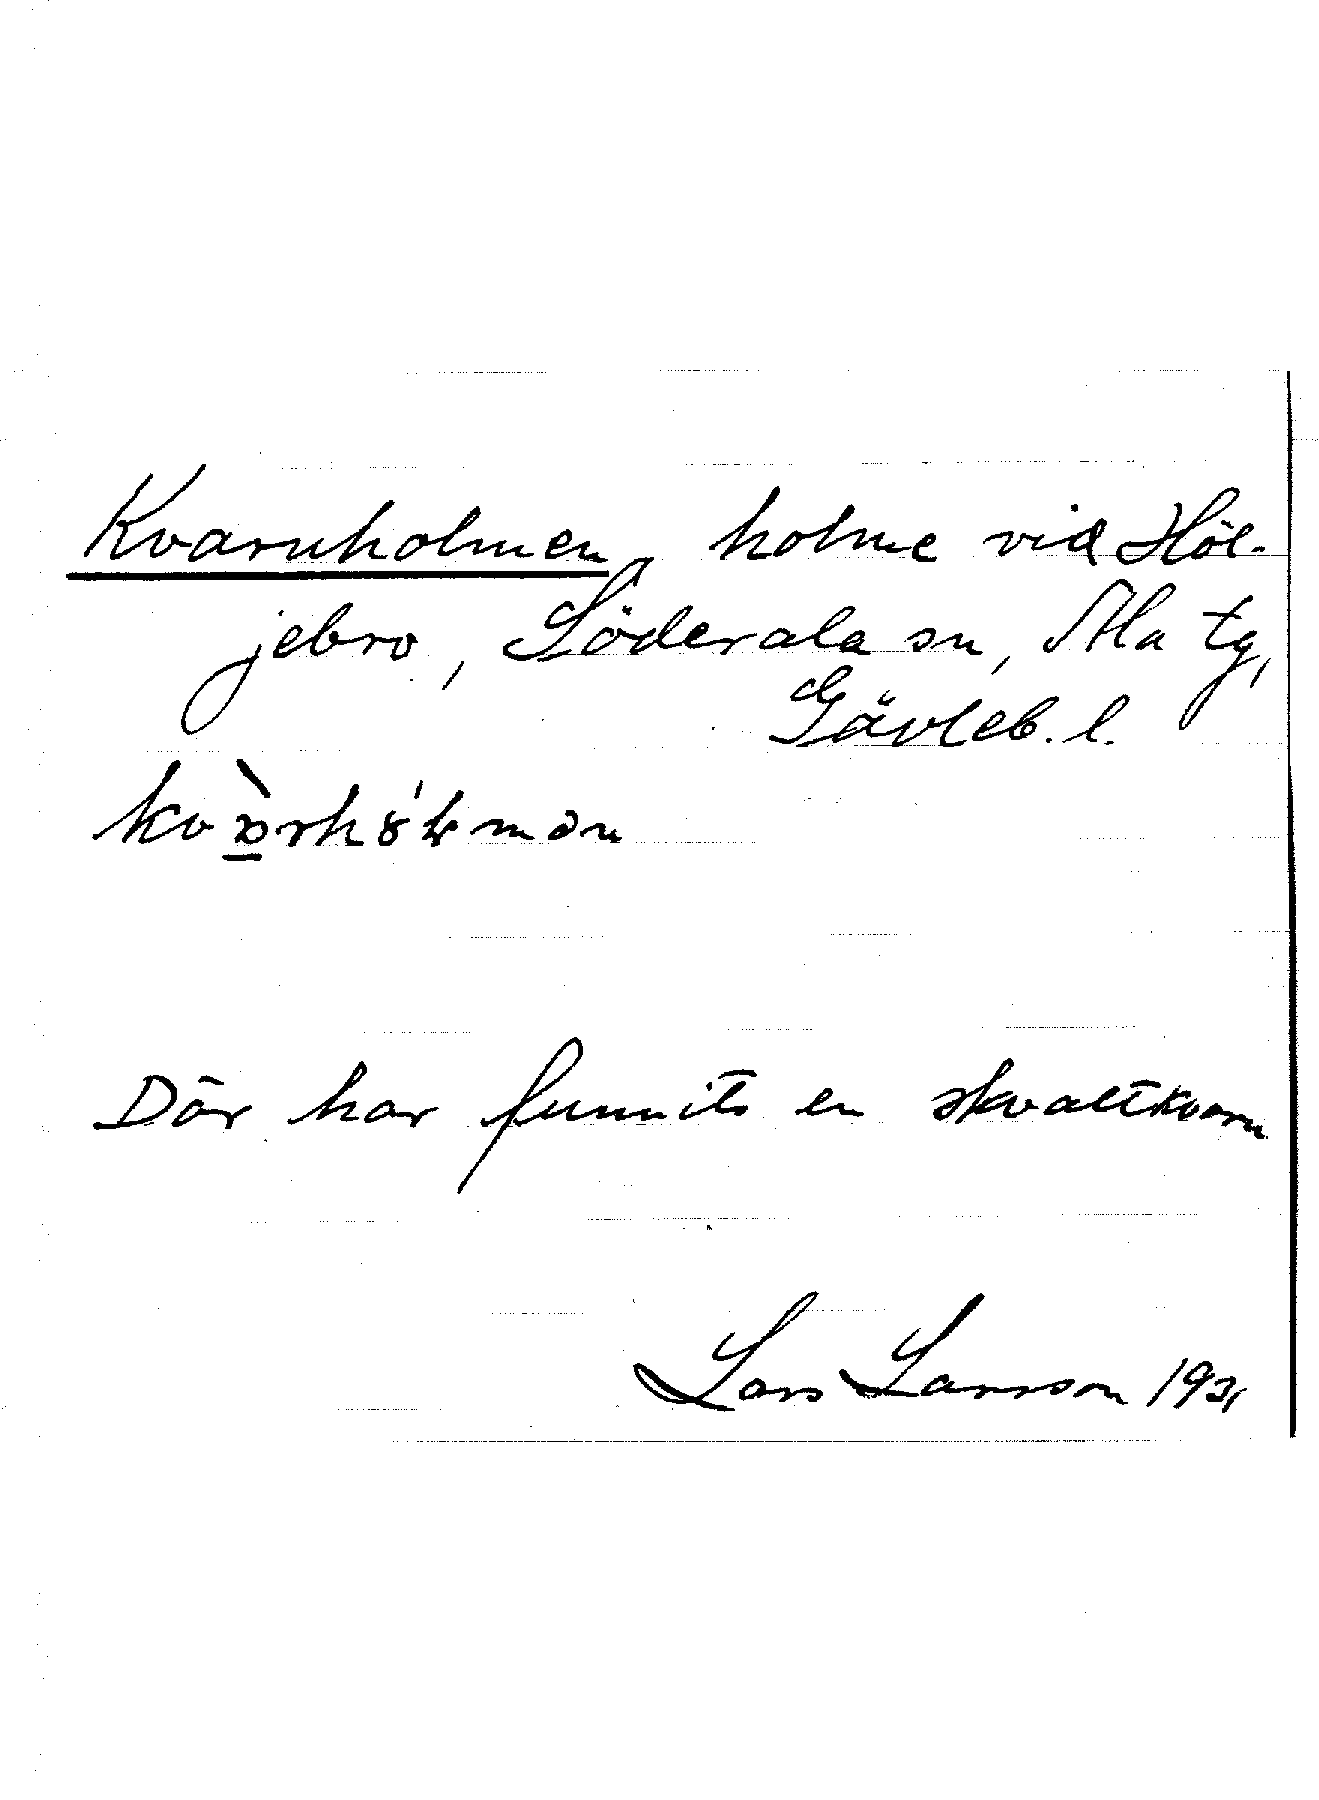 Kvarnholmen, holme vid Höl-
jebro, Söderala sn, Ala tg,
Gävleb. l.
Där har funnits en skvaltkvarn
Lars Larsson 1931